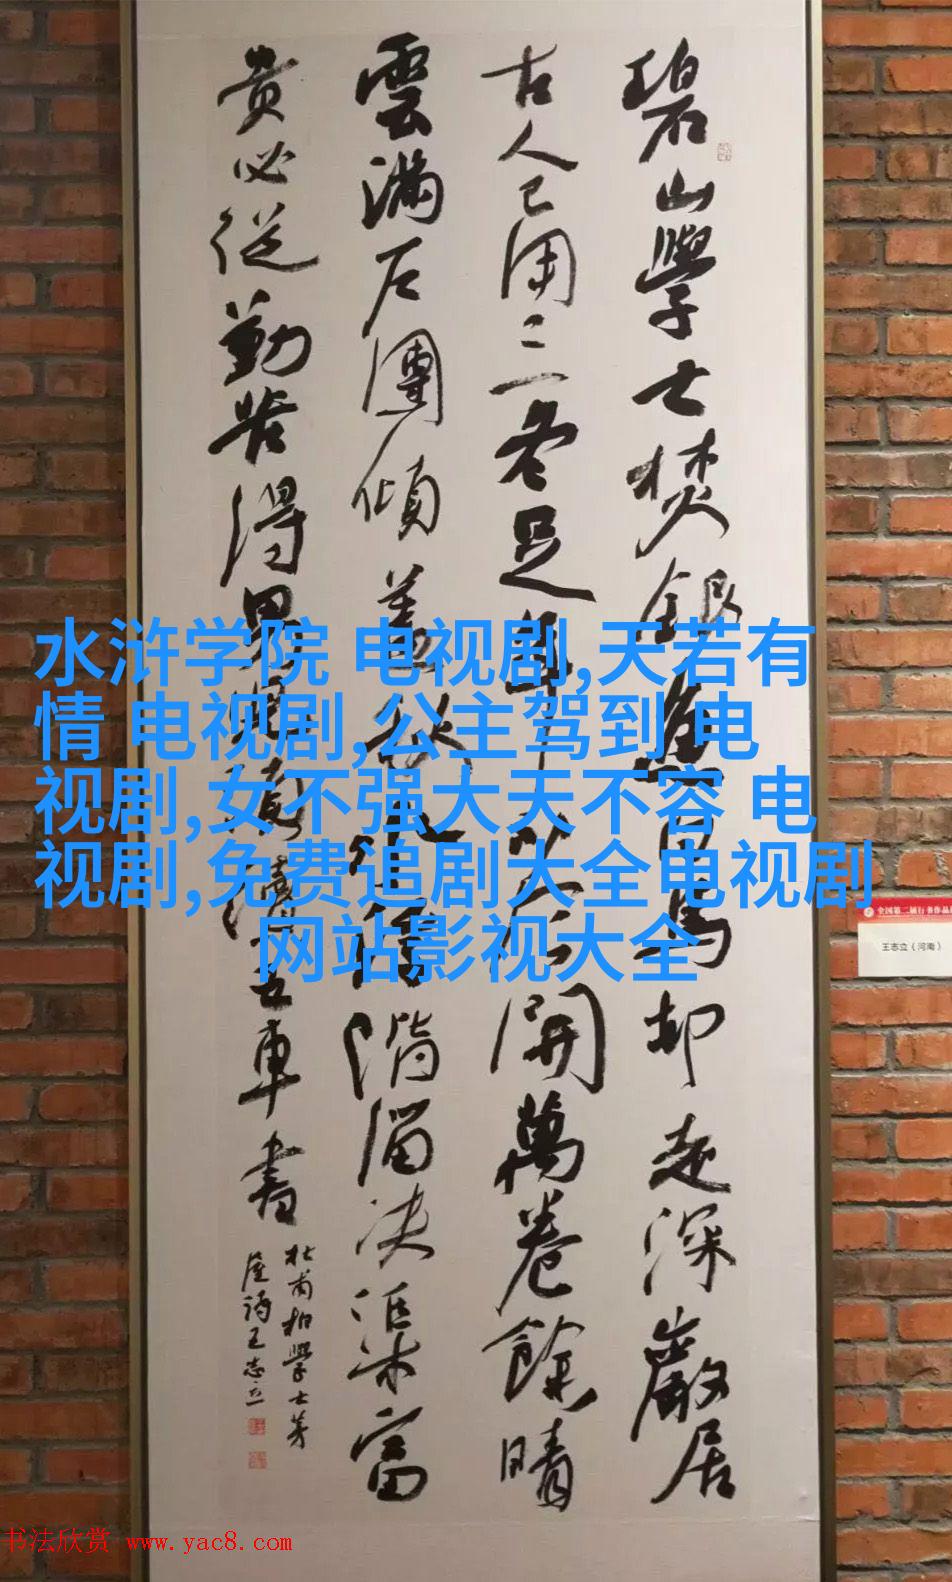 碧山學士焚銀魚白馬却走深巖居
古人已用三冬足年少今開萬卷餘晴
雲滿户團傾蓋秋水浮階溜决渠富
貴必從勤苦得男兒須讀五車書
杜甫柏學士茅
屋詩王志立
水浒学院 电视剧,天若有
情 电视剧,公主驾到 电
视剧,女不强大天不容 电
视剧,免费追剧大全电视剧
网站影视大全
全国第二届行书作品
王志立（河南）
书法欣赏 www.yac8.com